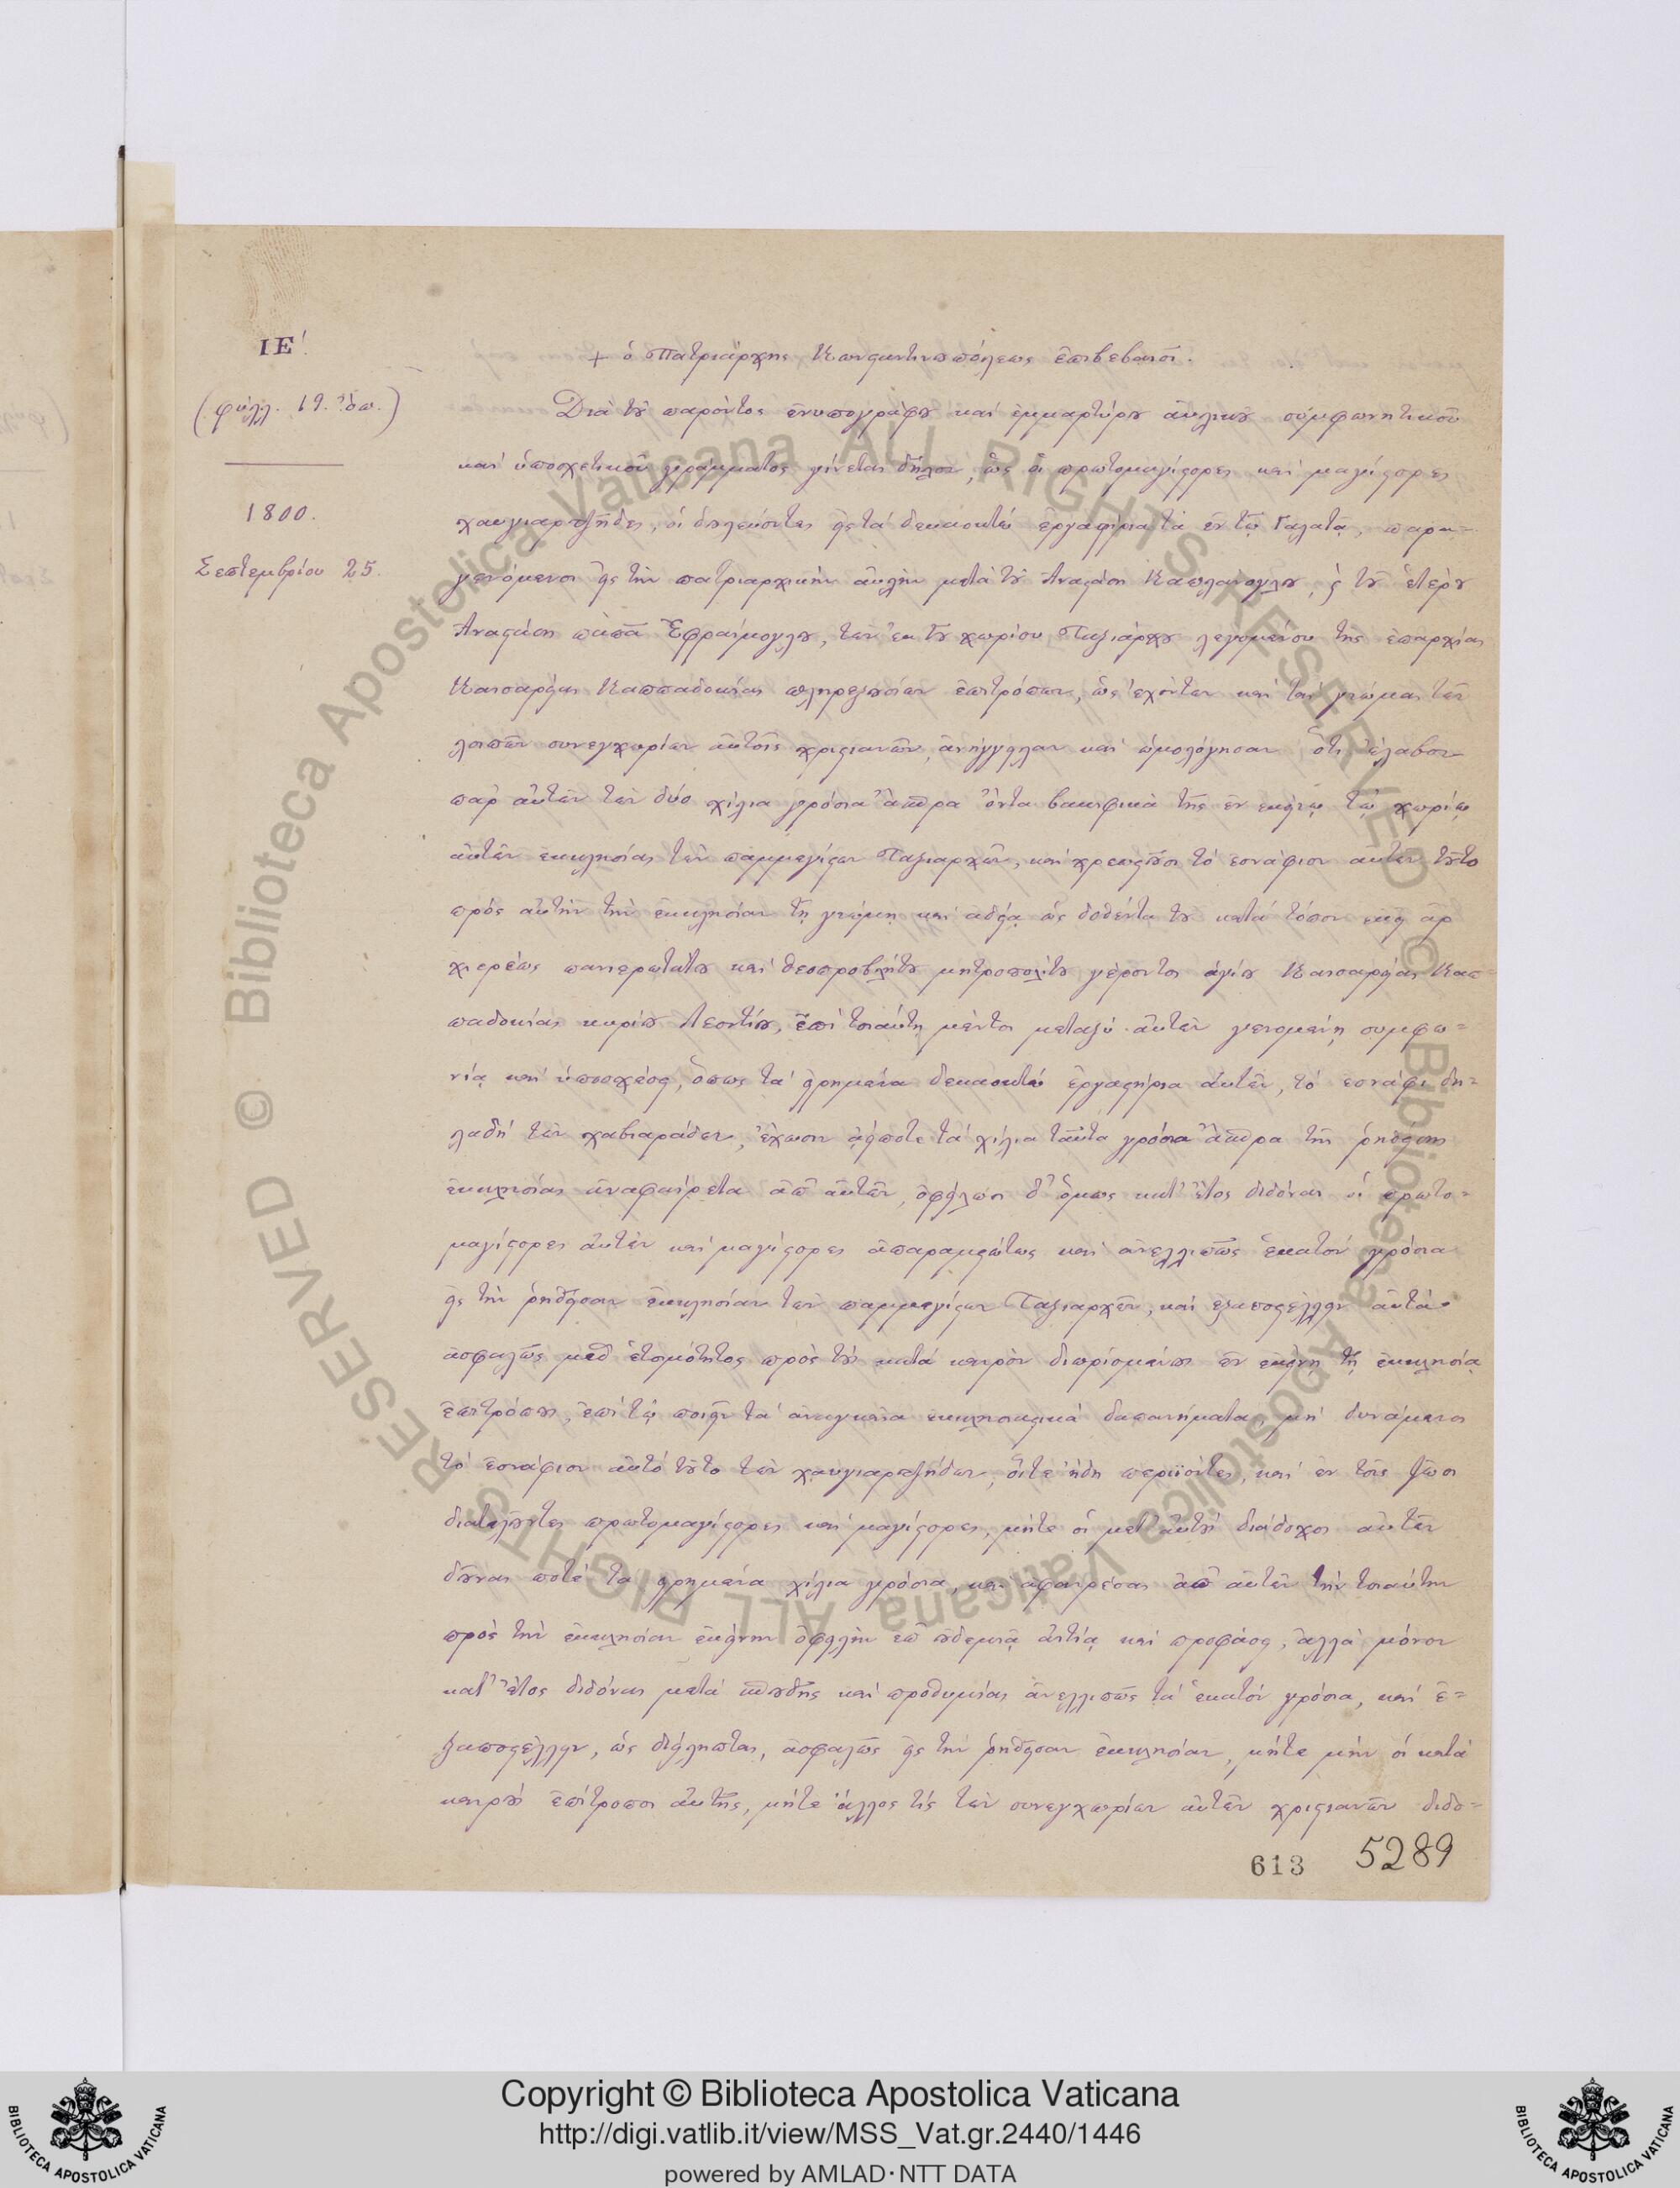 ΙΕ΄.
(φύλλ. 19. ὄπ.)
1800.
Σεπτεμβρίου 25.
+ ὁ Πατριάρχης Κωνσταντινουπόλεως ἐπιβεβαιοῖ.
Διὰ τοῦ παρόντος ἐνυπογράφου καὶ ἐμμαρτύρου αὐλικοῦ συμφωνητικοῦ
καὶ ὑποσχετικοῦ γράμματος γίνεται δῆλον, ὡς οἱ πρωτομαγίστορες καὶ μαγίστορες
χαυγιαρτζῆδες, οἱ δουλεύοντες εἰς τὰ δεκαοκτὼ ἐργαστήρια τὰ ἐν τῷ Γαλατᾷ, παρα-
γενόμενοι εἰς τὴν πατριαρχικὴν αὐλὴν μετὰ τοῦ Ἀναστάση Καπλάνογλου, καὶ τοῦ ἑτέρου
Ἀναστάση παπᾶ Ἐφραίμογλου, τῶν ἐκ τοῦ χωρίου Ταξιάρχου λεγομένου τῆς ἐπαρχίας
Καισαρείας Καππαδοκίας πληρεξουσίων ἐπιτρόπων, ὡς ἐχόντων καὶ τὰς γνώμας τῶν
λοιπῶν συνεγχωρίων αὐτοῖς χριστιανῶν, ἀνήγγειλαν καὶ ὡμολόγησαν ὅτι ἔλαβον
παρ' αὐτῶν τῶν δύο χίλια γρόσια ἄσπρα ὄντα βακουφικὰ τῆς ἐν ἐκείνῳ τῷ χωρίῳ
αὐτῶν ἐκκλησίας τῶν παμμεγίστων Ταξιαρχῶν, καὶ χρεωστοῦσι τὸ ἐσνάφιον αὐτῶν τοῦτο
πρὸς αὐτὴν τὴν ἐκκλησίαν τῇ γνώμῃ καὶ ἀδείᾳ ὡς δοθέντα τοῦ κατὰ τόπον ἐκεῖ ἀρ
χιερέως πανιερωτάτου καὶ θεοπροβλήτου μητροπολίτου γέροντος ἁγίου Καισαρείας Καπ-
παδοκίας κυρίου Λεοντίου, ἐπὶ τοιαύτῃ μέντοι μεταξὺ αὐτῶν γενομένῃ συμφω-
νίᾳ καὶ ὑποσχέσει, ὅπως τὰ εἰρημένα δεκαοκτὼ ἐργαστήρια αὐτῶν, τὸ ἐσνάφι δη-
λαδὴ τῶν χαβιαράδων, ἔχωσιν ἀείποτε τὰ χίλια ταῦτα γρόσια ἄσπρα τῆς ῥηθείσης
ἐκκλησίας ἀναφαίρετα ἀπ' αὐτῶν, ὀφείλωσι δ' ὅμως κατ' ἔτος διδόναι οἱ πρωτο-
μαγίστορες αὐτῶν καὶ μαγίστορες ἀπαραμειώτως καὶ ἀνελλιπῶς ἑκατὸν γρόσια
εἰς τὴν ῥηθεῖσαν ἐκκλησίαν τῶν παμμεγίστων Ταξιαρχῶν, καὶ ἐξαποστέλλειν αὐτὰ
ἀσφαλῶς μεθ' ἑτοιμότητος πρὸς τοὺς κατὰ καιρὸν διωρισμένους ἐν ἐκείνῃ τῇ ἐκκλησίᾳ
ἐπιτρόπους, ἐπὶ τῷ ποιεῖν τὰ ἀναγκαῖα ἐκκλησιαστικὰ δαπανήματα, μὴ δυνάμενοι
τὸ ἐσνάφιον αὐτὸ τοῦτο τῶν χαυγιαρτζήδων, οἵτε ἤδη περιϊόντες, καὶ ἐν τοῖς ζῶσι
διατελοῦντες πρωτομαγίστορες καὶ μαγίστορες, μήτε οἱ μετ' αὐτοὺς διάδοχοι αὐτῶν
δοῦναι ποτὲ τὰ εἰρημένα χίλια γρόσια, καὶ ἀφαιρέσαι ἀπ' αὐτῶν τὴν τοιαύτην
πρὸς τὴν ἐκκλησίαν ἐκείνην ὀφειλὴν ἐπ' οὐδεμιᾷ αἰτίᾳ καὶ προφάσει, ἀλλὰ μόνον
κατ' ἔτος διδόναι μετὰ σπουδῆς καὶ προθυμίας ἀνελλιπῶς τὰ ἑκατὸν γρόσια, καὶ ἐ-
ξαποστέλλειν, ὡς διείληπται, ἀσφαλῶς εἰς τὴν ῥηθεῖσαν ἐκκλησίαν, μήτε μὴν οἱ κατὰ
καιροὺς ἐπίτροποι αὐτῆς, μήτε ἄλλος τις τῶν συνεγχωρίων αὐτῶν χριστιανῶν διδο-
613 5289
© Biblioteca Apostolica Vaticana ALL RIGHTS RESERVED © Biblioteca Apostolica Vaticana ALL RIGHTS RESERVED
Copyright © Biblioteca Apostolica Vaticana
http://digi.vatlib.it/view/MSS_Vat.gr.2440/1446
powered by AMLAD·NTT DATA
BIBLIOTECA APOSTOLICA VATICANA
BIBLIOTECA APOSTOLICA VATICANA